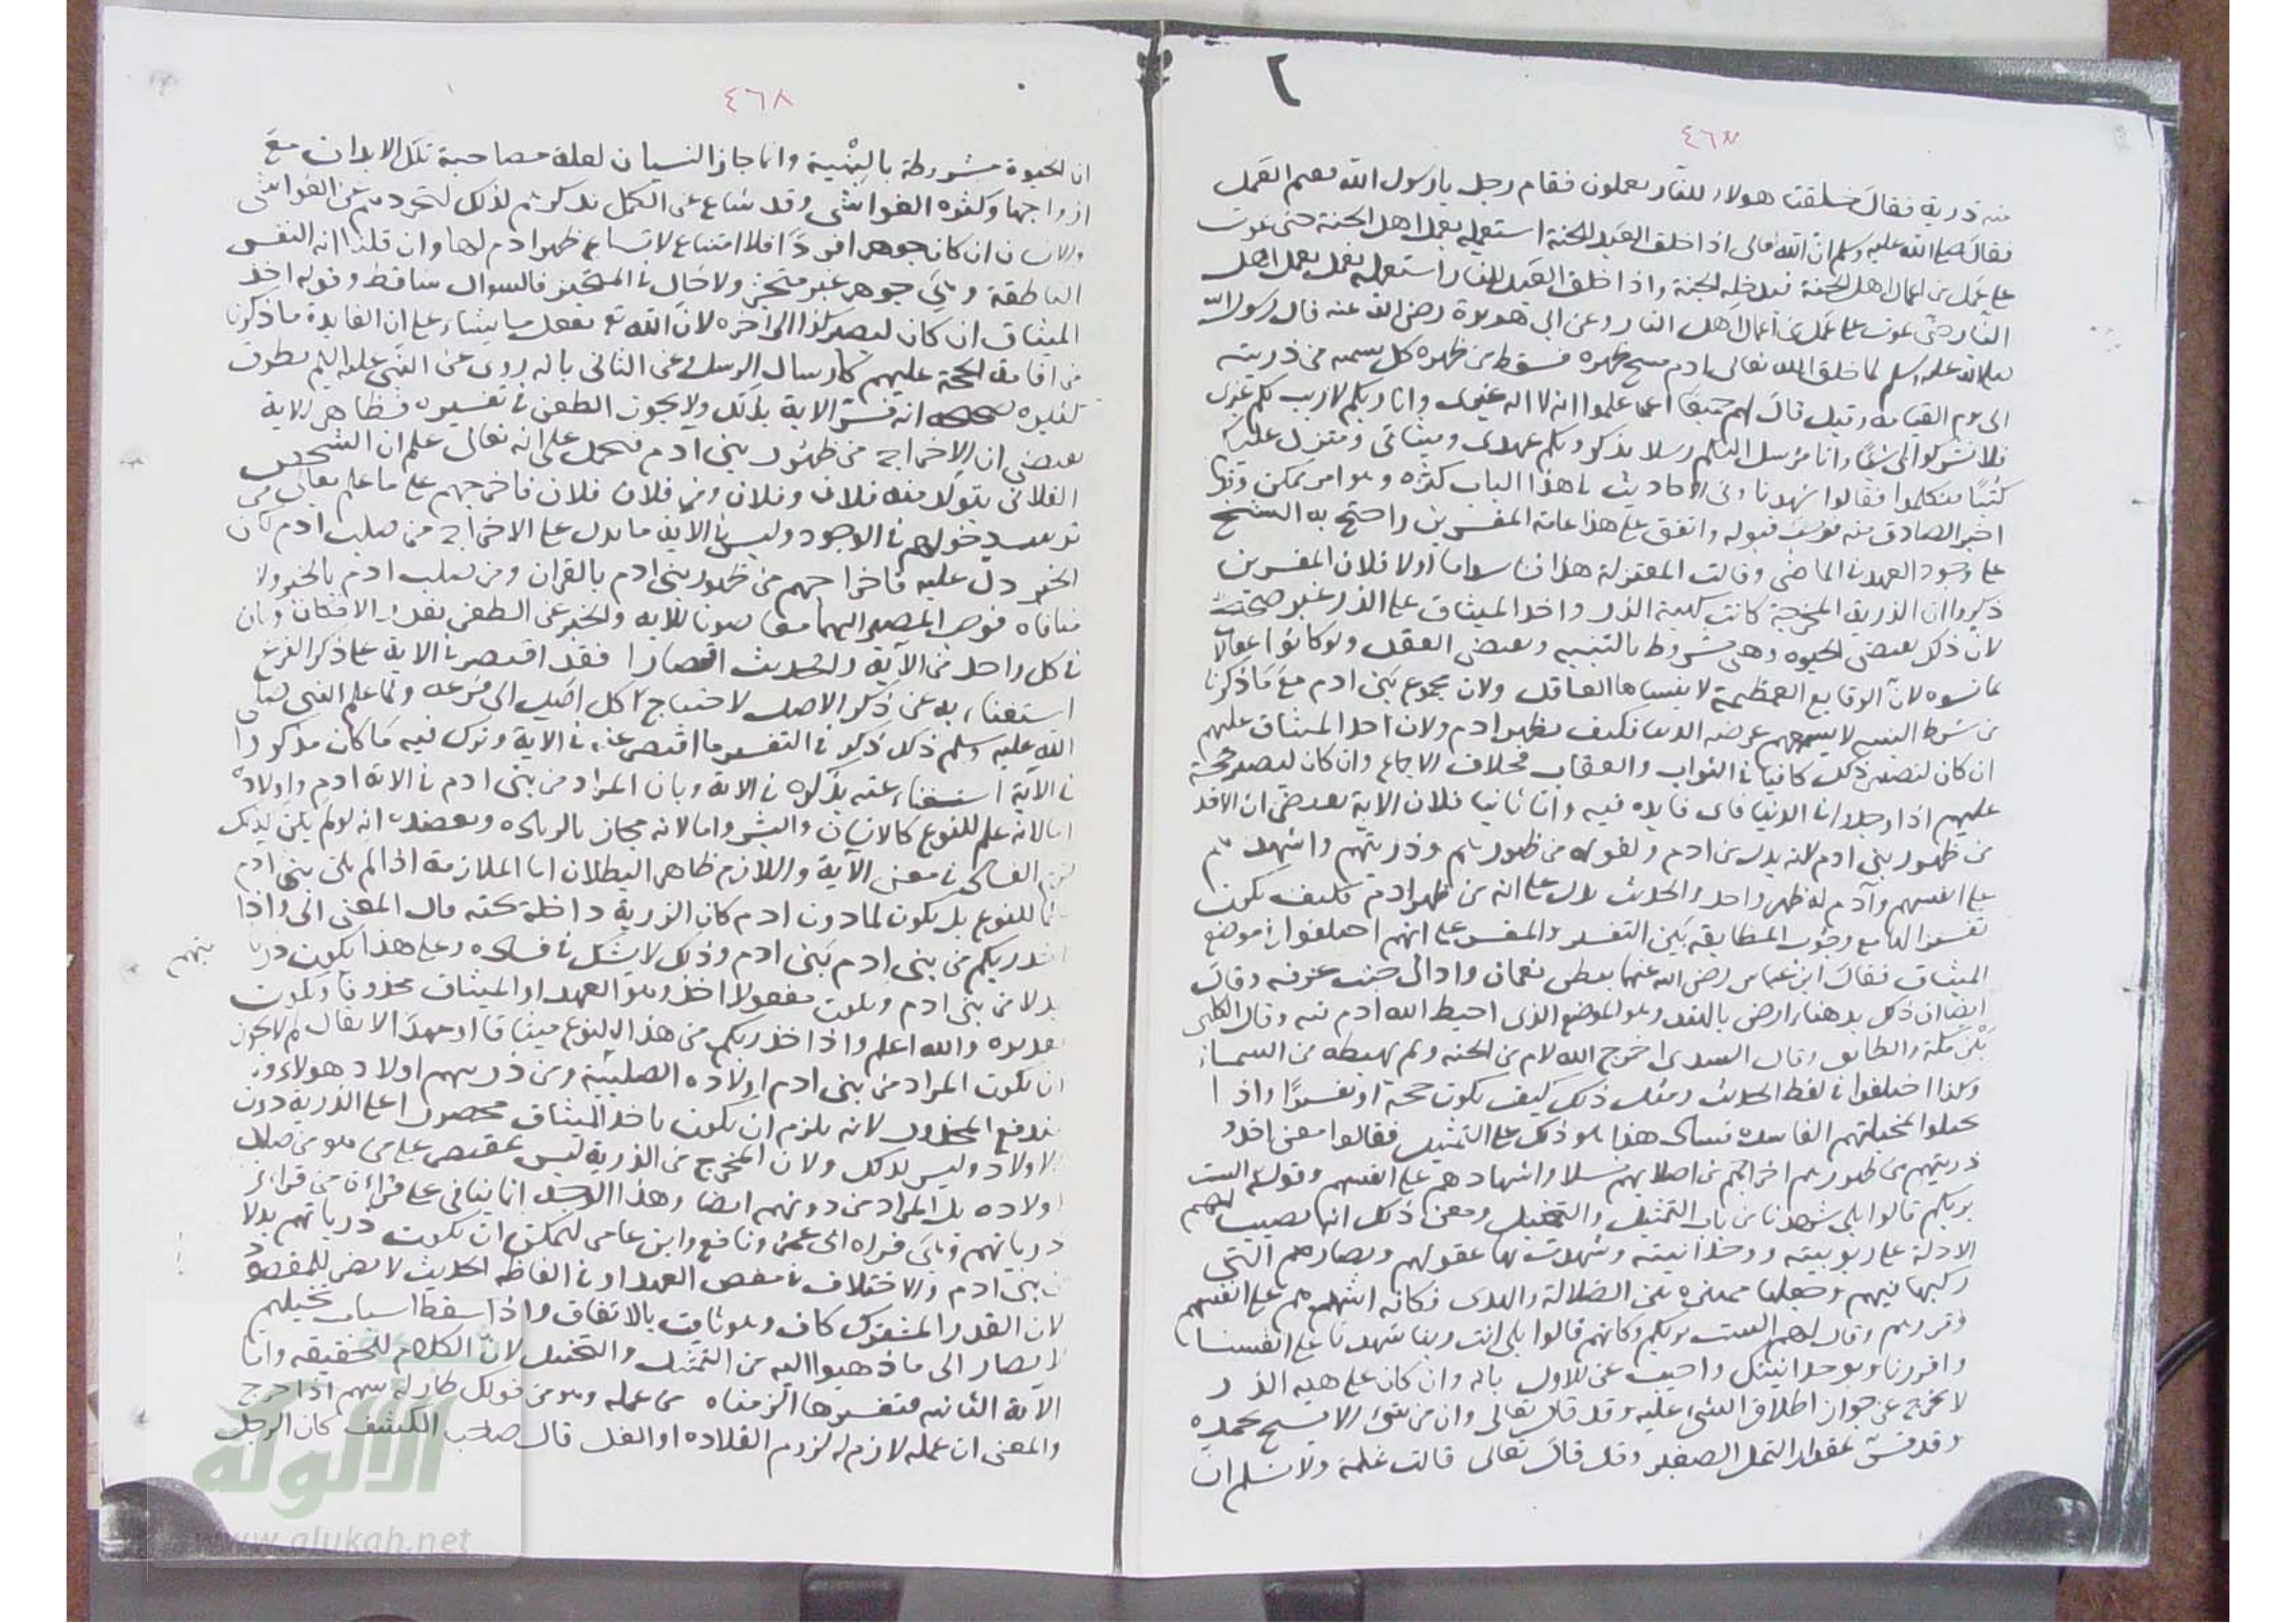 ٢
٤٦٨
منه ذرية فقال خلقت هولاء للنار يعملون فقام رجل يا رسول الله ففيم العمل
فقال صلى الله عليه وسلم ان الله تعالى اذا خلق العبد للجنة استعمله بعمل اهل الجنة حتى يموت
على عمل من اعمال اهل الجنة فيدخله الجنة واذا خلق العبد للنار استعمله بعمل اهل
النار حتى يموت على عمل من اعمال اهل النار وعن ابي هريرة رضى الله عنه قال رسول الله
صلى الله عليه وسلم لما خلق الله تعالى ادم مسح ظهره فسقط من ظهره كل نسمه من ذريته
الى يوم القيامة وقيل قال لهم جميعا اعلموا انه لا اله غيرى وانا ربكم لا رب لكم غيرى
فلا تشركوا بى شيئا وانا مرسل اليكم رسلا يذكرونكم عهدى وميثاقى ومنزل عليكم
كتبا فتكلموا فقالوا شهدنا وفى الاحاديث فى هذا الباب كثره وهو امر ممكن وقد
اخبر الصادق عنه فوجب قبوله واتفق على هذا عامة المفسرين واحتج به الشيخ
على وجود العهد فى الماضى وقالت المعتزلة هذا فاسد اما اولا فلان المفسرين
ذكروا ان الذرية المخرجة كانت كهيئة الذر واخذ الميثاق على الذر غير صحيح
لان ذلك يقتضى الحيوه وهى مشروطة بالبنيه ويقتضى العقل ولو كانوا عقلاء
لما نسوه لان الوقايع العظيمة لا ينساها العاقل ولان مجموع بنى ادم مع ما ذكرنا
من شرط البنيه لا يسعهم عرضه الدنيا فكيف بظهر ادم ولان اخذ الميثاق عليهم
ان كان ليصير ذلك كافيا فى الثواب والعقاب فخلاف الاجماع وان كان ليصير حجة
عليهم اذا وجدوا فى الدنيا فاى فايده فيه واما ثانيا فلان الاية يقتضى ان الاخذ
من ظهور بنى ادم لانه بدل من ادم ولقوله من ظهورهم وذريتهم واشهدهم
على انفسهم وآدم له ظهر واحد والحديث يدل على انه من ظهر ادم فكيف يكون
تفسيرا لها مع وجوب المطابقه بين التفسير والمفسر على انهم اختلفوا فى موضع
الميثاق فقال ابن عباس رضى الله عنهما ببطن نعمان واد الى جنب عرفه وقال
ايضا ان ذلك بدهناء ارض بالهند وهو الموضع الذى اهبط الله ادم فيه وقال الكلبى
بين مكة والطايف وقال السدى اخرج الله ادم من الجنه ولم يهبطه من السماء
وكذا اختلفوا فى لفظ الحديث ومثل ذلك كيف يكون حجة او تفسيرا واذا
جعلوا لمخيلتهم الفاسده فساد هذا حملوا ذلك على التمثيل فقالوا معنى اخذ
ذريتهم من ظهورهم اخراجهم من اصلابهم نسلا واشهادهم على انفسهم وقوله الست
بربكم قالوا بلى شهدنا من باب التمثيل والتخييل ومعنى ذلك انه نصب لهم
الادلة على ربوبيته ووحدانيته وشهدت بها عقولهم وبصايرهم التى
ركبها فيهم وجعلها مميزة بين الضلالة والهدى فكانه اشهدهم على انفسهم
وقررهم وقال لهم الست بربكم وكانهم قالوا بلى انت ربنا شهدنا على انفسنا
واقررنا بوحدانيتك واجيب عن الاول بانه وان كان على هيه الذر
لا يخرج عن جواز اطلاق الشئ عليه وقد قال تعالى وان من شئ الا يسبح بحمده
وقد فسر بمقدار النمل الصغير وقد قال تعالى قالت نملة ولا نسلم ان
٤٦٨
ان الحيوة مشروطة بالبنية وانما جاز النسيان لعلة مصاحبة تلك الابدان مع
ازواجها وكثره الغواشى وقد شاع عن الكمل تذكرهم لذلك لتجردهم عن الغواشى
والانسان ان كان جوهرا فردا فلا امتناع لاتساع ظهر ادم لها وان قلنا انه النفس
الناطقة وهى جوهر غير متحيز ولا حال فى المتحيز فالسوال ساقط وقوله اخذ
الميثاق ان كان ليصير كذا الى اخره لان الله تع يفعل ما يشاء على ان الفايدة ما ذكرنا
من اقامة الحجة عليهم كارسال الرسل وعن الثانى بانه روى عن النبى عليه السلم بطرق
كثيره انه فسر الاية بذلك ولا يجوز الطعن فى تفسيره فظاهر الاية
يقتضى ان الاخراج من ظهور بنى ادم فيحمل على انه تعالى علم ان الشخص
الفلانى يتولد منه فلان وفلان ومن فلان فلان فاخرجهم على ما علم تعالى من
ترتيب دخولهم فى الوجود وليس فى الاية ما يدل على الاخراج من صلب ادم كان
الخبر دل عليه فاخراجهم من ظهور بنى ادم بالقران ومن صلب ادم بالخبر ولا
منافاه فوجب المصير اليهما معا صونا للايه والخبر عن الطعن بقدر الامكان وبان
فى كل واحد من الآية والحديث اقتصارا فقد اقتصر فى الاية على ذكر الفرع
استغناء به عن ذكر الاصل لاحتياج كل اصل الى فرعه ولما علم النبى صلى
الله عليه وسلم ذلك ذكر فى التفسير ما اقتصر عنه فى الاية وترك فيه ما كان مذكورا
فى الآية استغناء عنه بذكره فى الاية وبان المراد من بنى ادم فى الاية ادم واولاده
اما لانه علم للنوع كالانسان والبشر واما لانه مجاز بالزياده ويعضده انه لو لم يكن كذلك
لزم الفساد فى معنى الآية واللازم ظاهر البطلان اما الملازمة اذا لم يكن بنى ادم
للنوع بل يكون لما دون ادم كان الذرية داخلة تحته قال المعنى الى واذا
اخذ ربكم من بنى ادم بنى ادم وذلك لا شك فى فساده وعلى هذا يكون ذريا
تهم
بدلا من بنى ادم ويكون مفعولا اخذ وهو العهد او الميثاق محذوفا ويكون
تقديره والله اعلم واذا اخذ ربكم من هذا النوع ميثاقا او عهدا لا يقال لم لا يجوز
ان يكون المراد من بنى ادم اولاده الصلبية ومن ذريتهم اولاد هولاء و
يندفع المحذور لانه يلزم ان يكون باخذ الميثاق محصورا على الذرية دون
الاولاد وليس كذلك ولان المخرج من الذرية ليس بمقتصر على من هو من صلب
اولاده بل المراد من دونهم ايضا وهذا الوجه انما ينافى على قراءة من قراء
ذرياتهم وهى قراه ابى عمرو ونافع وابن عامر ليمكن ان يكون ذرياتهم بدلا
من بنى ادم والاختلاف فى بعض العهد او فى الفاظ الحديث لا يضر بالمقصود
لان القدر المشترك كاف وهو ثابت بالاتفاق واذا سقط اسباب تخيلهم
لا يصار الى ما ذهبوا اليه من التمثيل والتخييل لان الكلام للحقيقه واما
الآية الثانيه فتفسيرها الزمناه من عمله وهو من قولك طار له سهم اذا خرج
والمعنى ان عمله لازم له لزوم القلاده او الغل قال صاحب الكشف كان الرجل
الألوكة
www.alukah.net